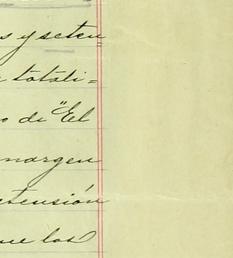 s y seten=
totali=
o de "El
margen
tensión
ue los